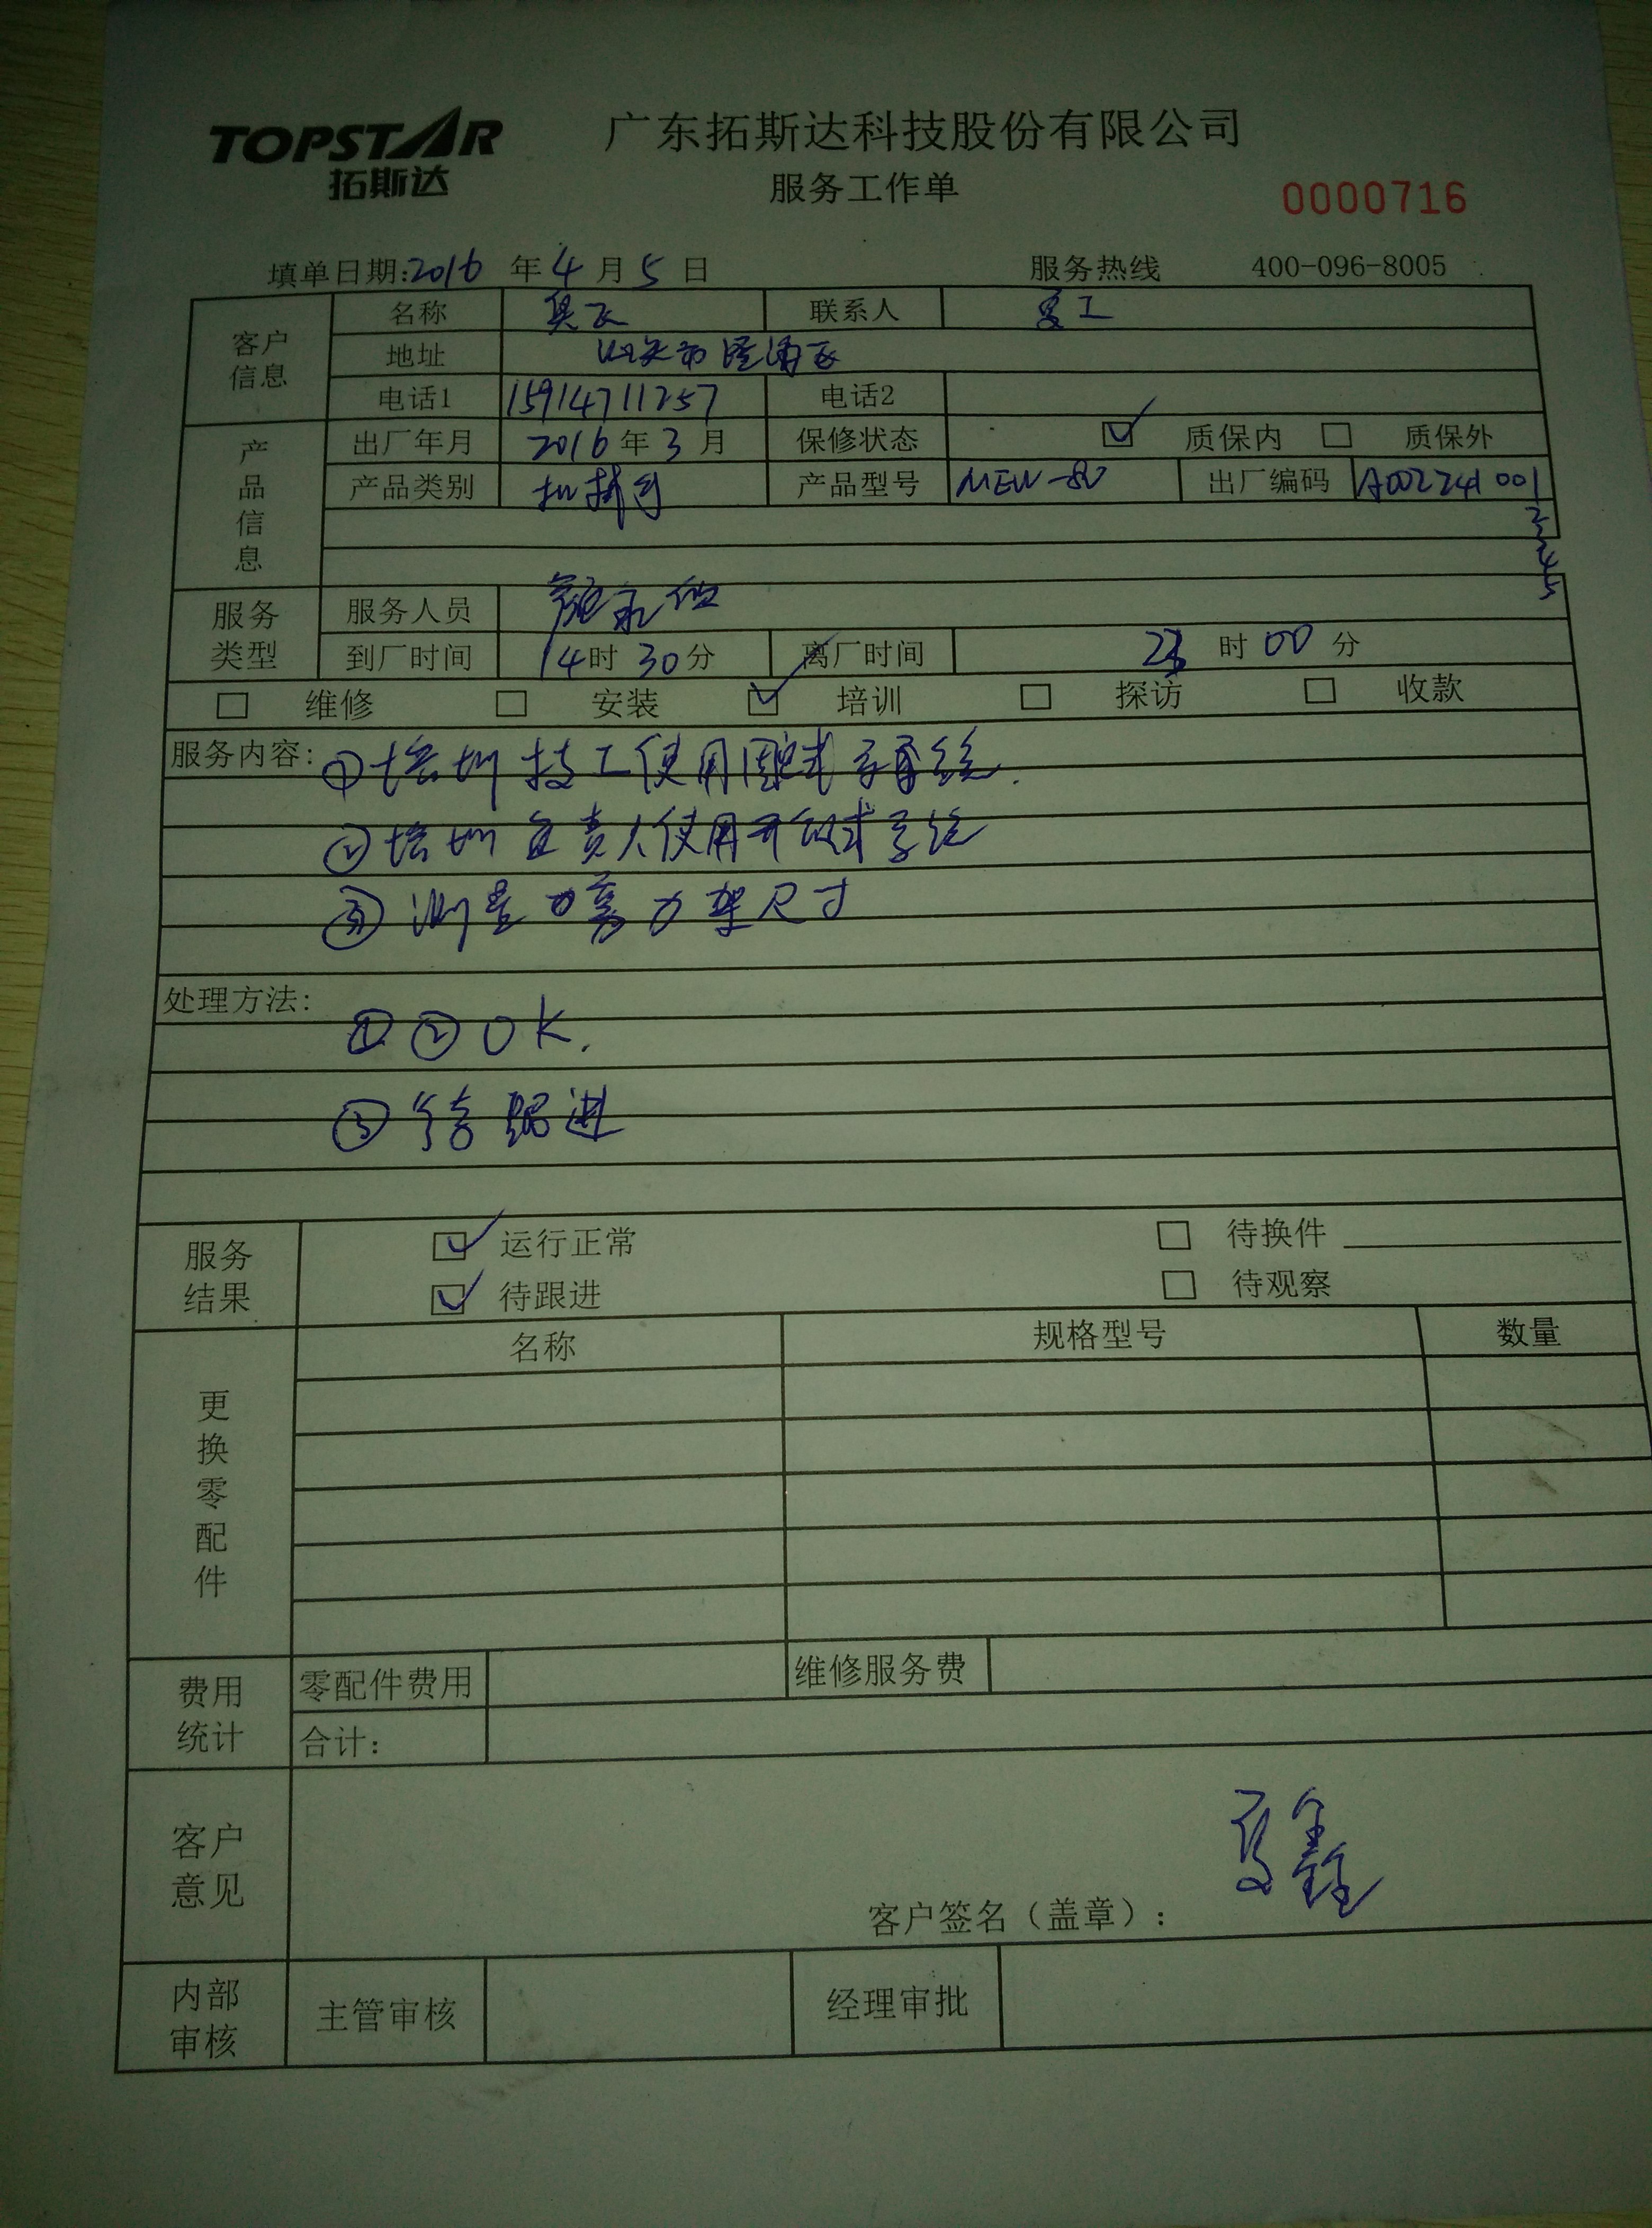 TOPSTAR
拓斯达
广东拓斯达科技股份有限公司
服务工作单
0000716
填单日期:2016 年 4 月 5 日 服务热线 400-096-8005
客户信息
名称 奥飞 联系人 夏工
地址 汕头市澄海区
电话1 15914711257 电话2
产品信息
出厂年月 2016 年 3 月 保修状态 质保内 质保外
产品类别 机械手 产品型号 MEW-80 出厂编码 A002241001
2
3
4
5
服务类型
服务人员
到厂时间 14时 30分 离厂时间 时 00 分
维修 安装 培训 探访 收款
服务内容: ①培训技工使用 系统.
②培训负责人使用开放式系统
③测量 架尺寸
处理方法:
①②OK.
③待跟进
服务结果
运行正常 待换件
待跟进 待观察
更换零配件
名称 规格型号 数量
费用统计
零配件费用 维修服务费
合计:
客户意见
客户签名（盖章）:
内部审核
主管审核 经理审批